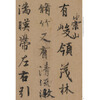 崇山
有峻領茂林
脩竹又有清流激
湍暎帶左右引